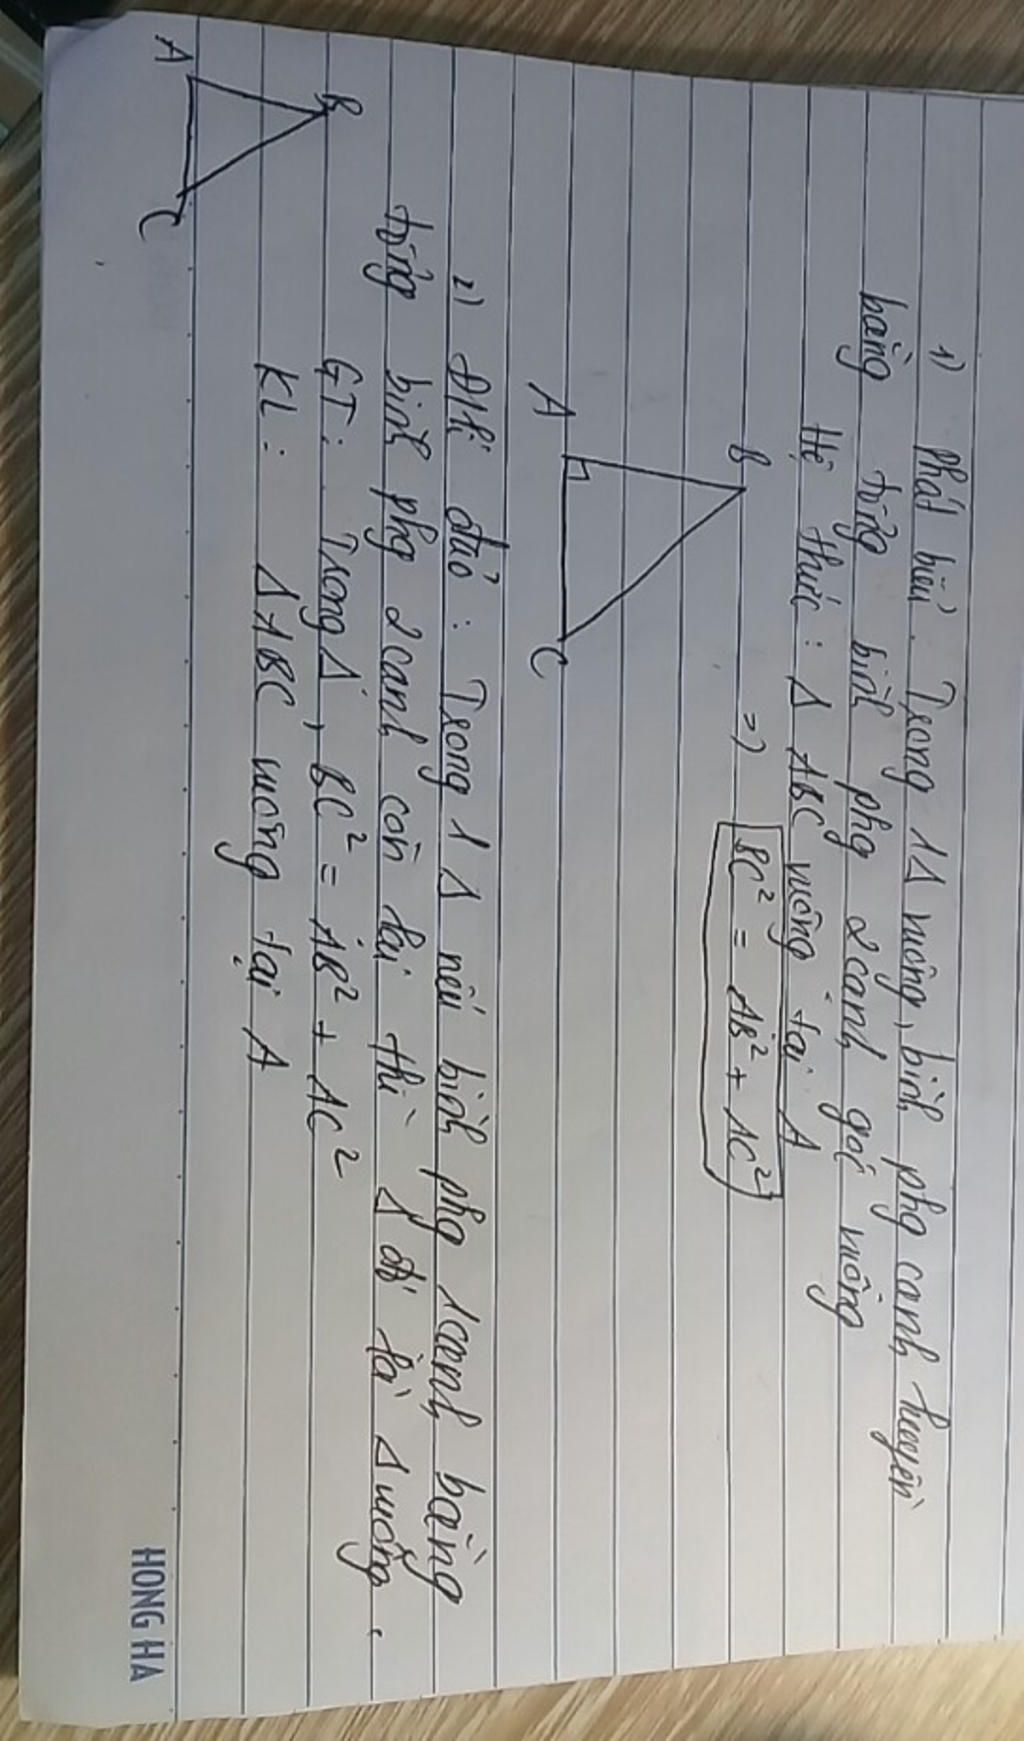 1) Phát biểu. Trong 1Δ vuông, bình phg cạnh huyền
bằng tổng bình phg 2 cạnh góc vuông
Hệ thức: Δ ABC vuông tại A
B
=> BC² = AB² + AC²
A
C
2) Đlí đảo: Trong 1 Δ nếu bình phg 1 cạnh bằng
tổng bình phg 2 cạnh còn lại thì Δ đó là Δ vuông.
GT: Trong Δ, BC² = AB² + AC²
KL: ΔABC vuông tại A
B
A
C
HONG HA